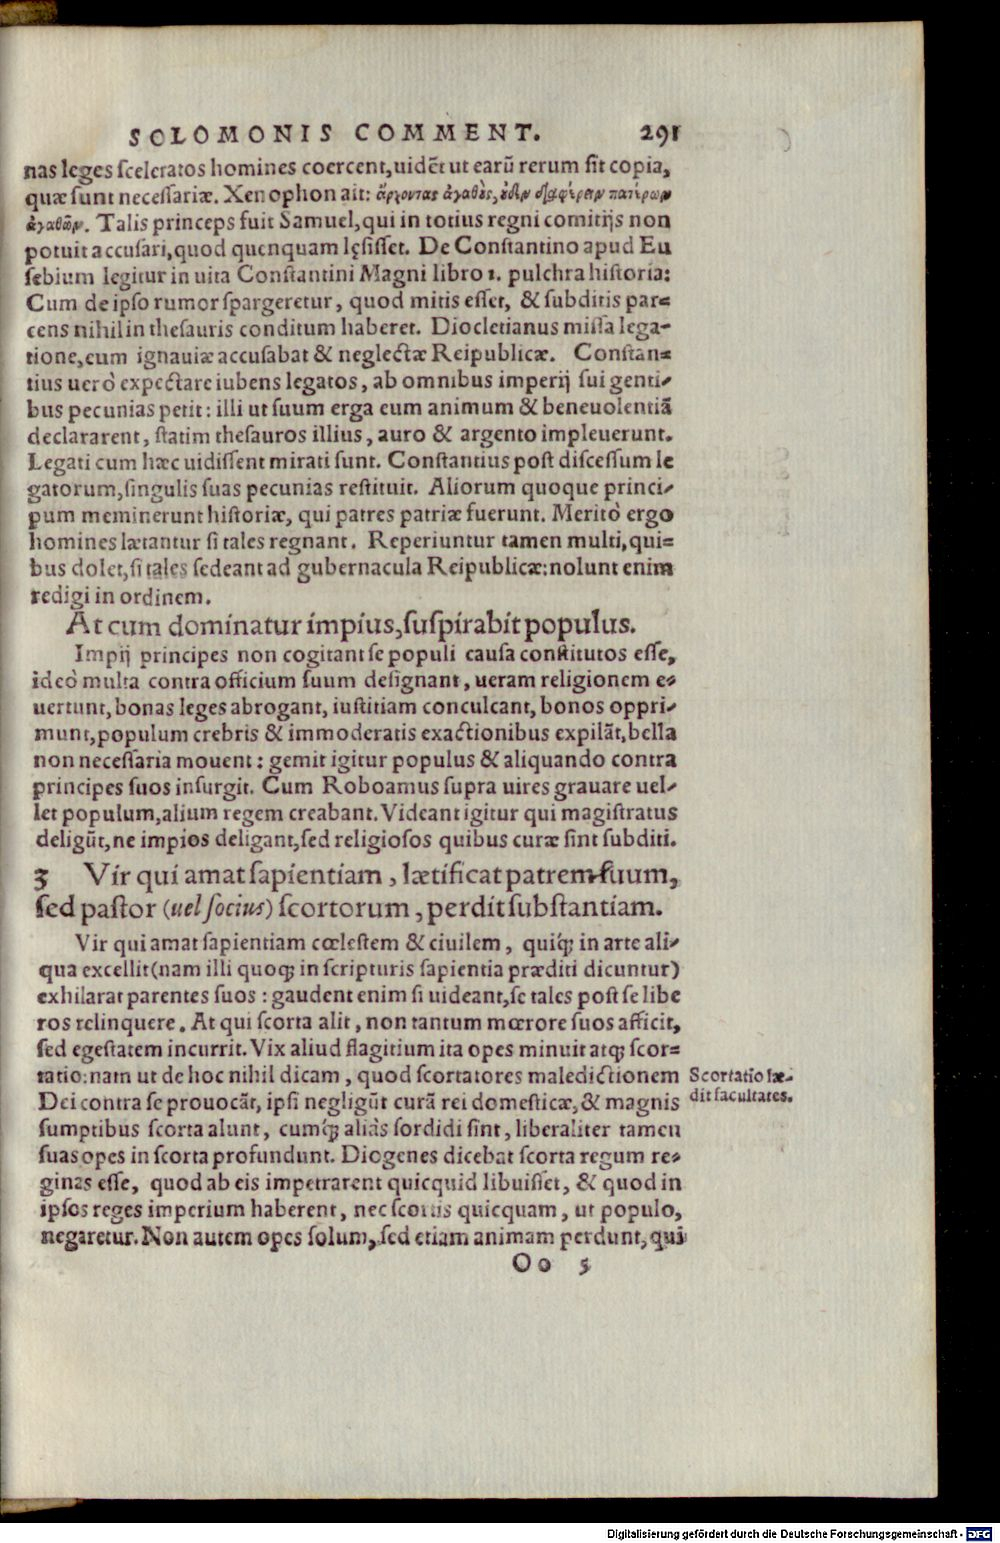 SOLOMONIS COMMENT. 291
nas leges sceleratos homines coercent, uidēt ut earū rerum sit copia,
quæ sunt necessariæ. Xenophon ait: ἄρχοντας ἀγαθȣ̀ς, ȣ̓δὲν διαφέρειν πατέρων
ἀγαθῶν. Talis princeps fuit Samuel, qui in totius regni comitijs non
potuit accusari, quod quenquam lęsisset. De Constantino apud Eu
sebium legitur in uita Constantini Magni libro 1. pulchra historia:
Cum de ipso rumor spargeretur, quod mitis esset, & subditis par⸗
cens nihil in thesauris conditum haberet. Diocletianus missa lega-
tione, eum ignauiæ accusabat & neglectæ Reipublicæ. Constan⸗
tius uerò expectare iubens legatos, ab omnibus imperij sui genti-
bus pecunias petit: illi ut suum erga eum animum & beneuolentiā
declararent, statim thesauros illius, auro & argento impleuerunt.
Legati cum hæc uidissent mirati sunt. Constantius post discessum le
gatorum, singulis suas pecunias restituit. Aliorum quoque princi-
pum meminerunt historiæ, qui patres patriæ fuerunt. Meritò ergo
homines lætantur si tales regnant. Reperiuntur tamen multi, qui⸗
bus dolet, si tales sedeant ad gubernacula Reipublicæ: nolunt enim
redigi in ordinem.
At cum dominatur impius, suspirabit populus.
Impij principes non cogitant se populi causa constitutos esse,
ideò multa contra officium suum designant, ueram religionem e-
uertunt, bonas leges abrogant, iustitiam conculcant, bonos oppri-
munt, populum crebris & immoderatis exactionibus expilāt, bella
non necessaria mouent: gemit igitur populus & aliquando contra
principes suos insurgit. Cum Roboamus supra uires grauare uel-
let populum, alium regem creabant. Videant igitur qui magistratus
deligūt, ne impios deligant, sed religiosos quibus curæ sint subditi.
3 Vir qui amat sapientiam, lætificat patrem suum,
sed pastor (uel socius) scortorum, perdit substantiam.
Vir qui amat sapientiam cœlestem & ciuilem, quiq́; in arte ali-
qua excellit (nam illi quoq; in scripturis sapientia præditi dicuntur)
exhilarat parentes suos: gaudent enim si uideant, se tales post se libe
ros relinquere. At qui scorta alit, non tantum mœrore suos afficit,
sed egestatem incurrit. Vix aliud flagitium ita opes minuit atq; scor⸗
tatio: nam ut de hoc nihil dicam, quod scortatores maledictionem
Dei contra se prouocāt, ipsi negligūt curā rei domesticæ, & magnis
sumptibus scorta alunt, cumq́; aliàs sordidi sint, liberaliter tamen
suas opes in scorta profundunt. Diogenes dicebat scorta regum re-
ginas esse, quod ab eis impetrarent quicquid libuisset, & quod in
ipsos reges imperium haberent, nec scortis quicquam, ut populo,
negaretur. Non autem opes solum, sed etiam animam perdunt, qui
Oo 5
Scortatio læ-
dit facultates.
Digitalisierung gefördert durch die Deutsche Forschungsgemeinschaft - DFG